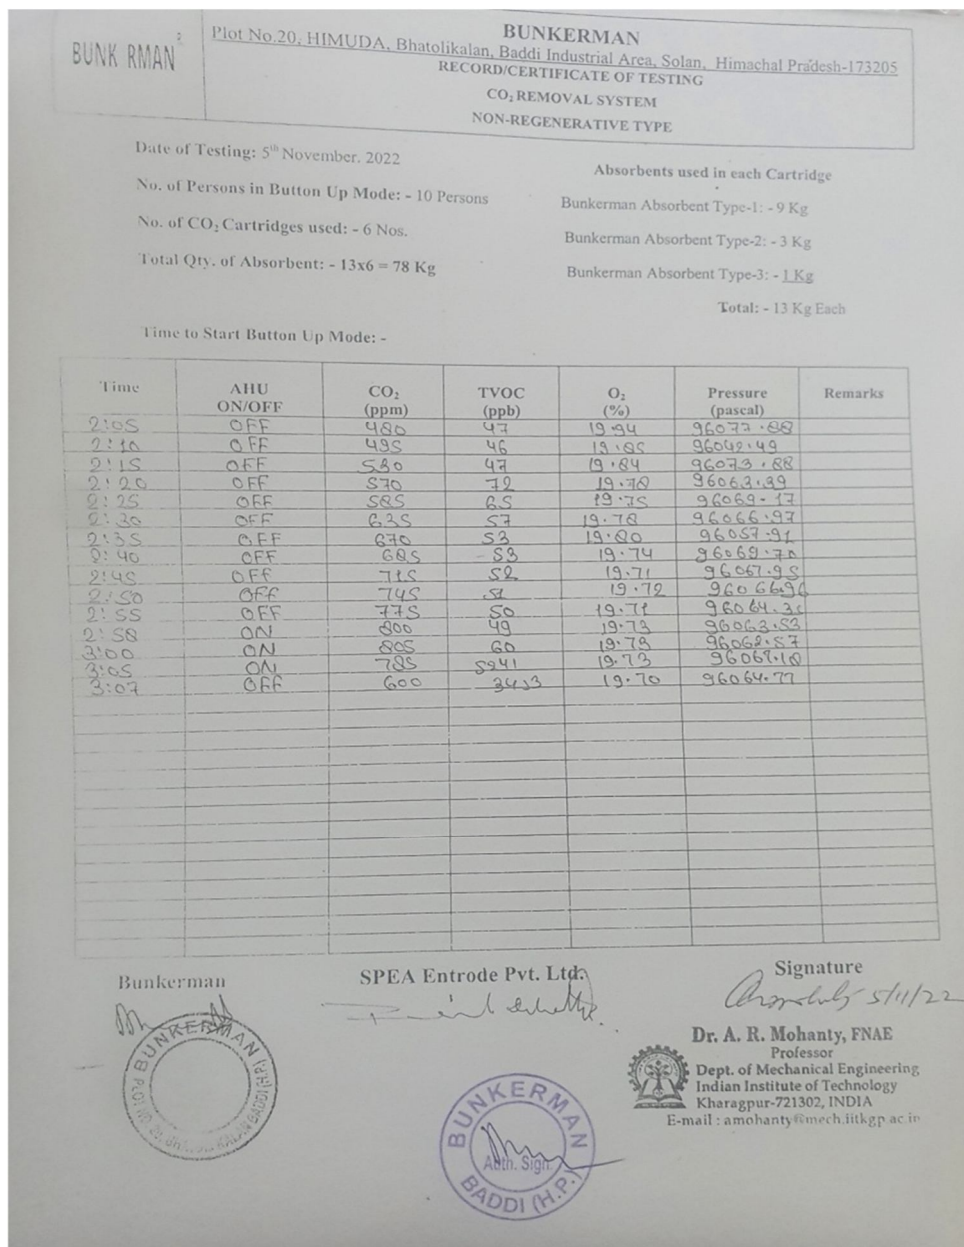 BUNK RMAN
BUNKERMAN
Plot No.20, HIMUDA, Bhatolikalan, Baddi Industrial Area, Solan, Himachal Pradesh-173205
RECORD/CERTIFICATE OF TESTING
CO₂ REMOVAL SYSTEM
NON-REGENERATIVE TYPE
Date of Testing: 5th November. 2022
No. of Persons in Button Up Mode: - 10 Persons
No. of CO₂ Cartridges used: - 6 Nos.
Total Qty. of Absorbent: - 13x6 = 78 Kg
Absorbents used in each Cartridge
Bunkerman Absorbent Type-1: - 9 Kg
Bunkerman Absorbent Type-2: - 3 Kg
Bunkerman Absorbent Type-3: - 1 Kg
Total: - 13 Kg Each
Time to Start Button Up Mode: -
Time AHU ON/OFF CO₂ (ppm) TVOC (ppb) O₂ (%) Pressure (pascal) Remarks
2:05 OFF 480 47 19.94 96077.88
2:10 OFF 495 46 19.85 96042.49
2:15 OFF 530 47 19.84 96073.88
2:20 OFF 570 72 19.78 96063.39
2:25 OFF 585 65 19.75 96069.17
2:30 OFF 635 57 19.78 96066.97
2:35 OFF 670 53 19.80 96057.91
2:40 OFF 685 53 19.74 96069.70
2:45 OFF 715 52 19.71 96067.95
2:50 OFF 745 51 19.72
2:55 OFF 775 50 19.71
2:58 ON 800 49 19.73 96063.53
3:00 ON 805 60 19.73 96062.57
3:05 ON 785 5241 19.73 96067.18
3:07 OFF 600 19.70 96064.77
Bunkerman
SPEA Entrode Pvt. Ltd.
Signature
5/11/22
Dr. A. R. Mohanty, FNAE
Professor
Dept. of Mechanical Engineering
Indian Institute of Technology
Kharagpur-721302, INDIA
E-mail : amohanty@mech.iitkgp.ac.in
BUNKERMAN
PLOT NO. 20, KALAN BADDI (H.P.)
BUNKERMAN
Auth. Sign.
BADDI (H.P.)